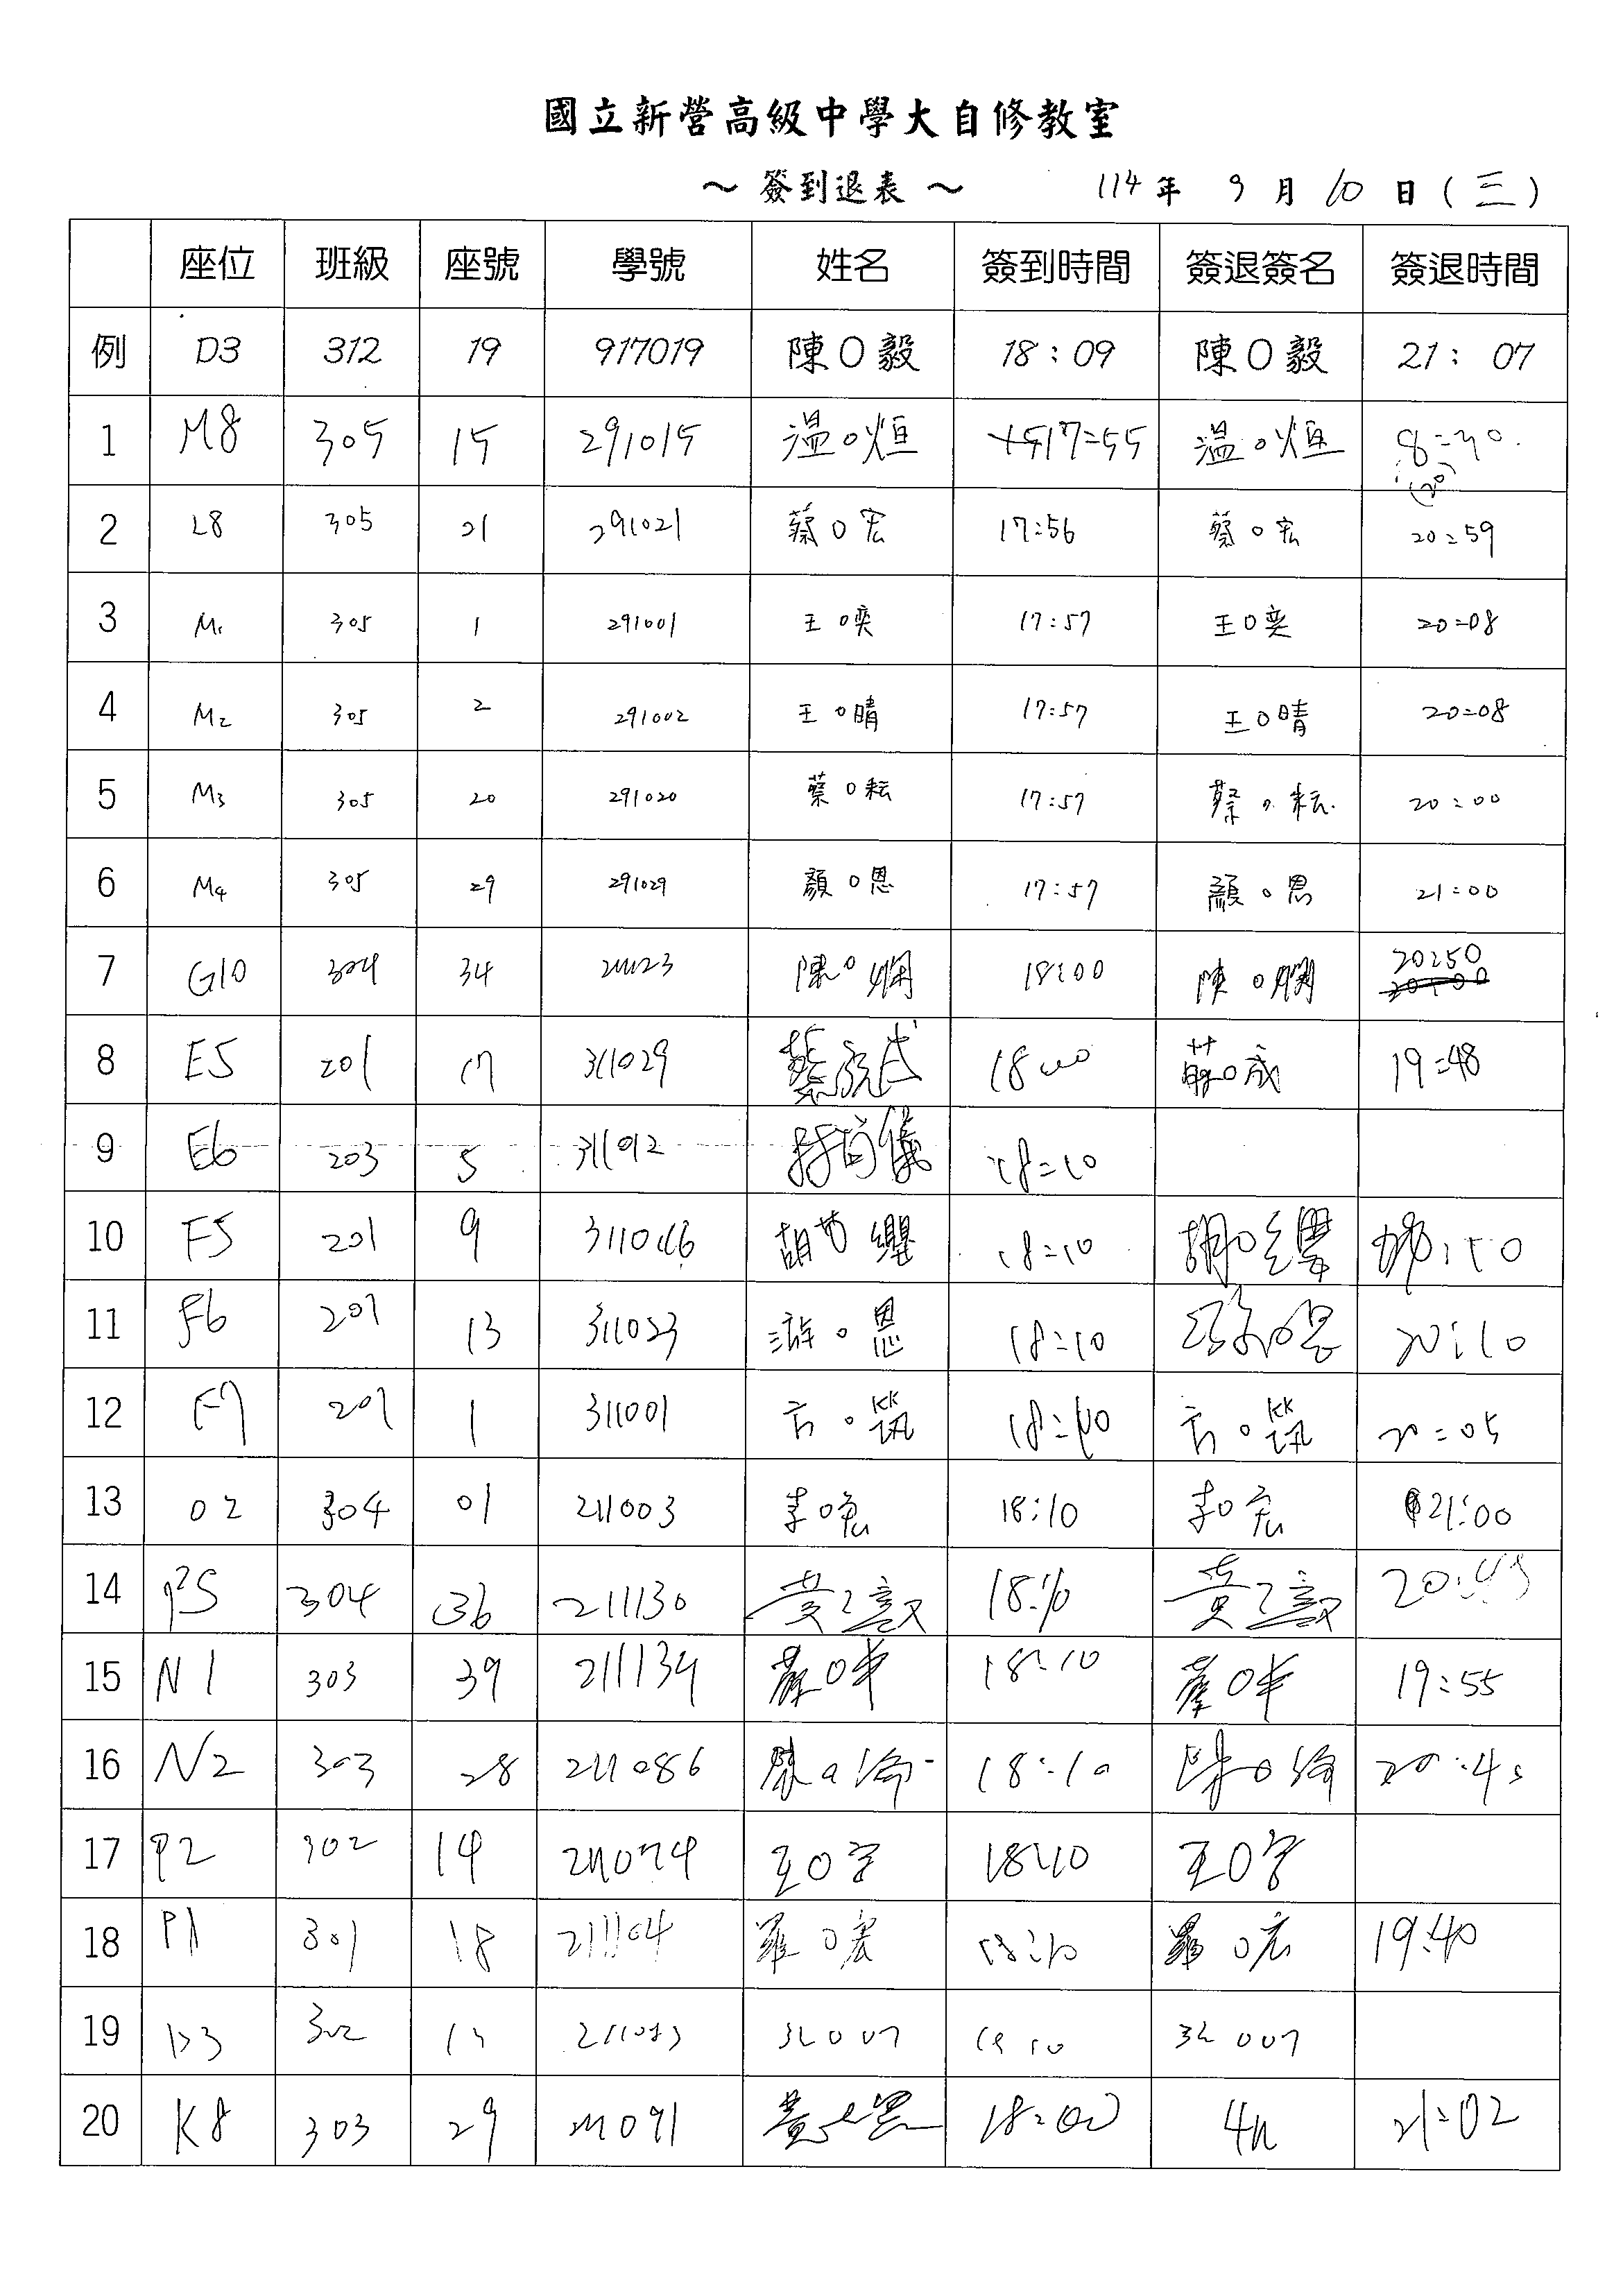 國立新營高級中學大自修教室
～ 簽到退表 ～ 114年 9月10日(三)
座位 班級 座號 學號 姓名 簽到時間 簽退簽名 簽退時間
例 D3 312 19 917019 陳O毅 18:09 陳O毅 21:07
1 M8 305 15 291015 溫O烜 17=55 溫O烜
2 L8 305 21 291021 蔡O宏 17:56 蔡O宏 20=59
3 M1 305 1 291001 王O奕 17:57 王O奕 20=08
4 M2 305 2 291002 王O晴 17:57 王O晴 20=08
5 M3 305 20 291020 蔡O耘 17:57 蔡O耘 20=00
6 M4 305 29 291029 顏O恩 17:57 顏O恩 21=00
7 G10 304 34 陳O嫻 18:00 陳O嫻 20:50
8 E5 201 17 311029 18:00 19=48
9 E6 203 5 18=10
10 F5 201 9 311046 18=10
11 F6 201 13 311023 游O恩 18=10 20:10
12 F7 201 1 311001 方O 18=10 方O 20=05
13 O2 304 01 211003 李O 18:10 李O宏 21:00
14 P5 304 36 211130 18:10
15 N1 303 39 211134 18:10 19:55
16 N2 303 28 211086 陳O 18:10 陳O
17 P2 302 14 211074 王O 18:10 王O
18 P1 301 18 211104 羅O宏 18:10 羅O宏 19:40
19 302
20 K8 303 29 211091 18=00 21=02